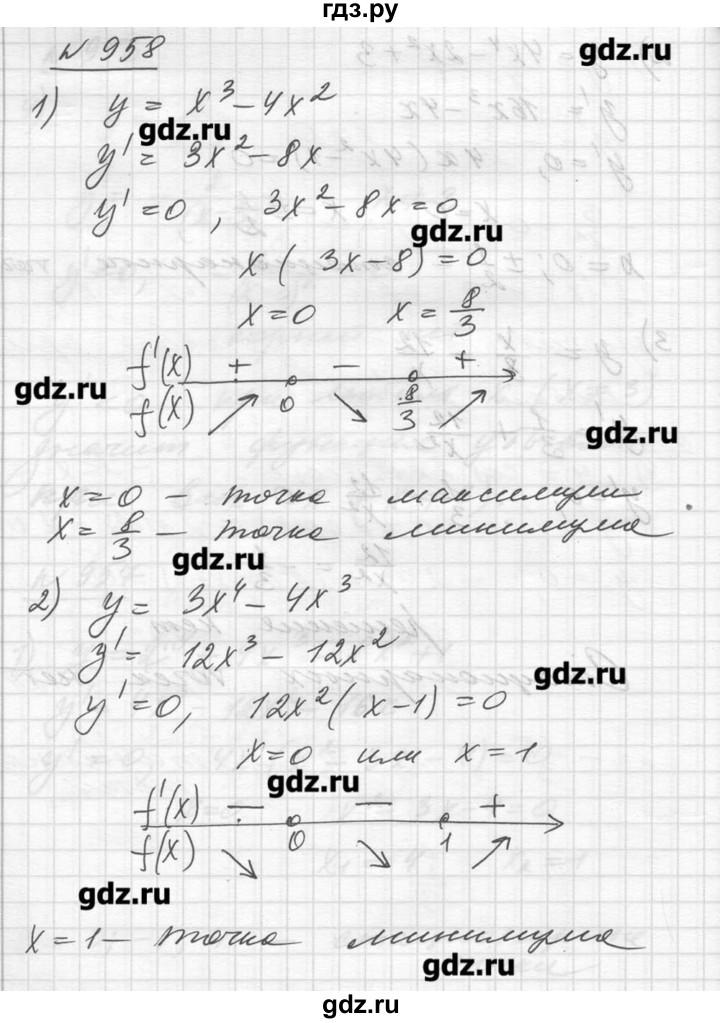 гдз.ру
№958
gdz.ru
1) y = x³ - 4x²
gdz.ru
y' = 3x² - 8x
y' = 0, 3x² - 8x = 0
gdz.ru
x(3x - 8) = 0
x = 0 x = 8/3
f'(x) + - +
gdz.ru
f(x) 0 8/3
gdz.ru
x = 0 - точка максимума
x = 8/3 - точка минимума
gdz.ru
2) y = 3x⁴ - 4x³
y' = 12x³ - 12x²
gdz.ru
y' = 0, 12x²(x - 1) = 0
x = 0 или x = 1
gdz.ru
f'(x) - - +
f(x) 0 1
gdz.ru
x = 1 - точка минимума
gdz.ru
gdz.ru